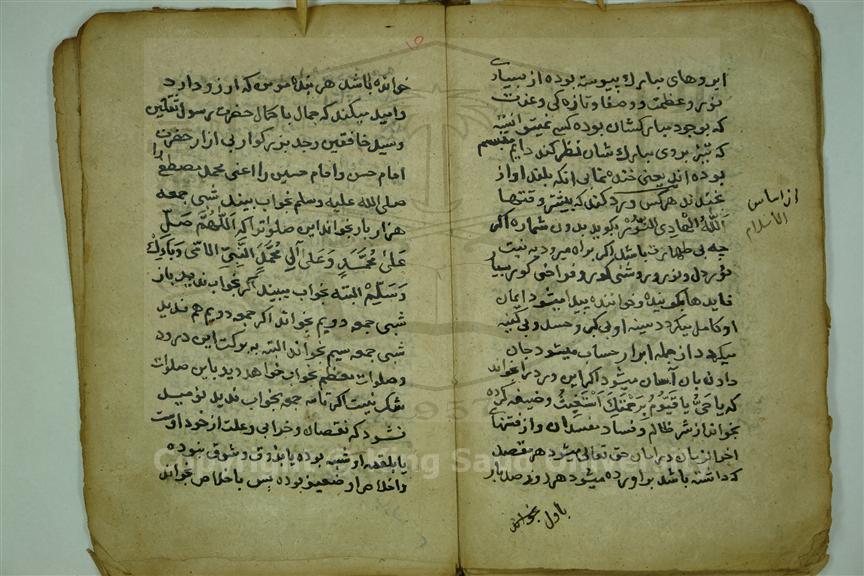 ابروهای مبارك پیوسته بوده از بسیاری
نور و عظمت و وصفا و تازه کی و عزت
که بوجود مبارکشان بوده کسی نمیتوانسته
که تیز بروی مبارك شان نظر کند دایم متبسم
بوده اند یعنی خنده نمایی انکه بلند اواز
نخندند هر کس ورد کند که بیشتر وقتها
اَللّٰهُ الْهَادِی النُّوْرُ بکوید بدون شماره اکر
چه بی طهارت باشد اکر براه میرود به نیت
نور دل و نور و روشنی کور و فراخی کور بسیار
فایدها کوینده و خواننده پیدا میشود ایمان
او کامل میکردد سینه او بی کبر و حسد و بی کینه
میکردد از جمله ابرار حساب میشود جان
دادن بان آسان میشود اکر این ورد را بخواند
که یَا حَیُّ یَا قَیُّومُ بِرَحْمَتِكَ اَسْتَغِیْثُ وظیفه کرده
بخواند از شر ظالم و فساد مفسدان و از فتنهای
اخر الزمان در امان حق تعالی میشود هر مقصد
که داشته باشد براورده میشود هر روز صد بار
باول بخواند
از اساس
الاسلام
خوانده باشد هر بنده مومن که ارزو دارد
و امید میکند که جمال با کمال حضرت رسول ثقلین
وسید خافقین وجد بزرکوار بی ازار حضرت
امام حسن و امام حسین را اعنی محمد مصطفی را
صلی الله علیه وسلم بخواب بیند شبی جمعه
هزار بار بخواند این صلوات را که اَللّٰهُمَّ صَلِّ
عَلیٰ مُحَمَّدٍ وَعَلیٰ آلِ مُحَمَّدٍ النَّبِیِّ الْاُمِّی وَبَارِكْ
وَسَلِّمْ البته بخواب میبیند اکر بخواب ندید باز
شبی جمعه دویم بخواند اکر جمعه دویم هم ندید
شبی جمعه سیم بخواند البته به برکت این درود
وصلوات معظم بخواب خواهد دید باین صلوات
شک نیست اکر تا سه جمعه بخواب ندید نومید
نشود که نقصان و خرابی و علت از خود اوست
یا بلقمه او شبه بوده یا بذوق و شوق نبوده
و اخلاص او ضعیف بوده پس با اخلاص بخواند
Copyright © King Saud University
1957